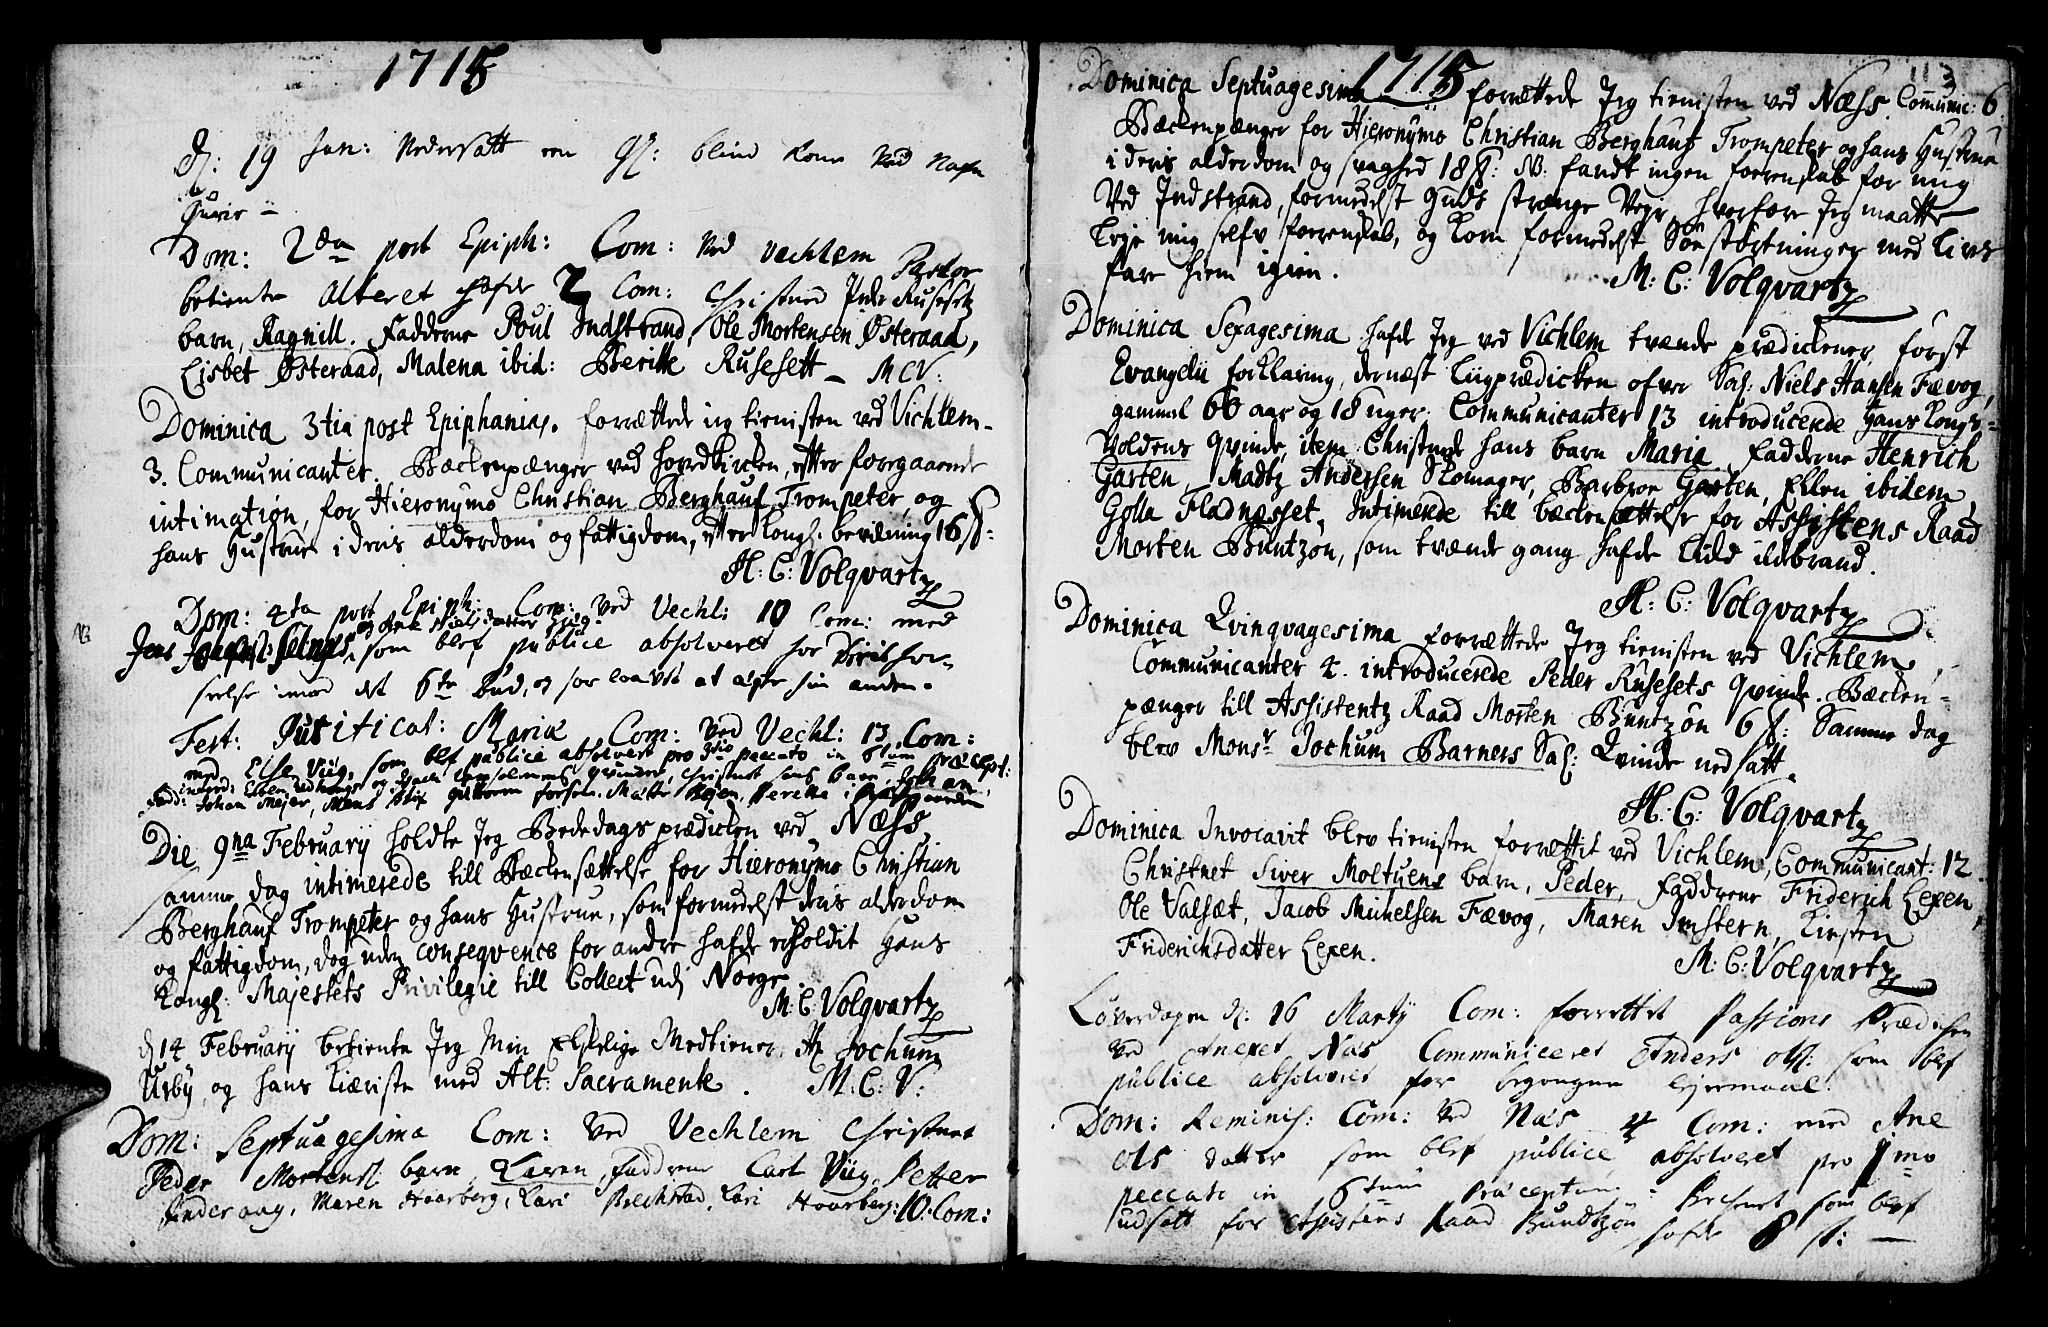 1715
d: 19 Jan: Nedersatt een blind Kone ved Nafn
Guric –
Dom: 2da post Epiph: Com: ved Vechlem Pastor
betiente Alteret hafde 2 Com: Christned Peder Rusesetz
barn, Ragnill. Fadderne Poul Indstrand, Ole Mortensen Østeraad,
Lisbet Østeraad, Malena ibid: Beritte Rusesett – MCV:
Dominica 3tia post Epiphanias. forrættede jeg tienisten ved Vichlem.
3. Communicanter. Beckenpænger ved hovedkircken, efter foregaaende
intimation, for Hieronymo Christian Berghauf Trompeter, og
hans Hustrue i deris alderdom og fattigdom, efter Kongl: bevilning 16 ß:
H: C: Volqvartz
Dom: 4ta post Epiph: Com: ved Vechl: 10 Com: med
NB
Jens Selnes, som blef publice absolveret for
seelse imod det 6te bud, og for at ægte sin anden.
Fest: Purificat: Mariæ Com: ved Vechl: 13 Com:
med Else Viig, som blef publice absolvert pro 3tio peccato in 6tum præcept:
Fad: Johan Mejer, Mens
Die 9na February holdte Jeg Bededags prædicken ved Næss,
samme dag intimerede till Beckensættelse for Hieronymo Christian
Berghauf Trompeter og hans Hustrue, som formedelst deris alderdom
og fattigdom, dog uden conseqvence for andre hafde erholdit Hans
Kongl: Majestets Privilegie till Collect udj Norge.
M: C: Volqvartz
d 14 February betiente Jeg Min Elskelige Medtiener Hr Jochum
Ursby, og hans Kiæriste med Alt: Sacramente. M: C: V:
Dom: Septuagesima Com: ved Vechlem Christnet
Peder Mortens: barn, Karen, Faddrene Carl Viig, Petter
Inderaag, Maren Haarberg, Kari Brechstad, Kari Haarberg: 10. Com:
1715
113
Dominica Septuagesima forrættede Jeg tienisten ved Næss. Communic: 6
Beckenpænger for Hieronymo Christian Berghauf Trompeter og hans Hustrue
i deris alderdom og svaghed 18 ß: N: fandt ingen foerenskab for mig
ved Indstrand, formedelst Guds strænge Vejr, hvorfore Jeg maatte
Leje mig self foerenskab, og kom formedelst Søe størtninger med Livs
fare hiem igien.
M: C: Volqvartz
Dominica Sexagesima hafde Jeg ved Vichlem tvænde prædickener, først
Evangelii forklaring, dernæst Liigprædicken ofver Sal: Niels Hansen Fævog,
gammel 66 aar og 18 uger. Communicanter 13 introducerede Hans Kongs=
Voldens qvinde, item Christnede hans barn Maria fadderne Henrich
Garten, Madtz Andersen Skomager, Barbroe Garten, Ellen ibidem
Golla Fladnæsset. Intimerede till beckensættelse for Assistens Raad
Morten Buntzøn, som tvænde gang hafde Liid ildebrand.
H: C: Volqvartz
Dominica Qvinqvagesima forrættede Jeg tienisten ved Vichlem,
Communicanter 4. introducerede Peder Rusesets qvinde. Becken-
pænger till Assistentz Raad Morten Buntzøn 6 ß: Samme dag
blev Monsr Jochum Barners Sal: Qvinde nedsatt.
H: C: Volqvartz
Dominica Invocavit blev tienisten forrættit ved Vichlem, Communicant: 12.
Christnet Siver Moltuens barn, Peder, Faddrene Friderich Lexen,
Ole Valsæt, Jacob Michelsen Fævog, Maren Imstern, Kirsten
Friderichsdatter Lexen.
M: C: Volqvartz
Løverdagen d: 16 Marty Com: forrettet Passions Prædichen
ved Anexet Næs Communiceret Anders Ols: som blef
publice absolveret for begongen Lejermaal.
Dom: Reminis: Com: ved Næs 4 Com: med Ane
Ols datter som blef publice absolveret pro 1mo
peccato in 6tum Præceptum. Bechenet som blef
udsatt for Assistens Raad Bundtzøn hafde 8 ß: —